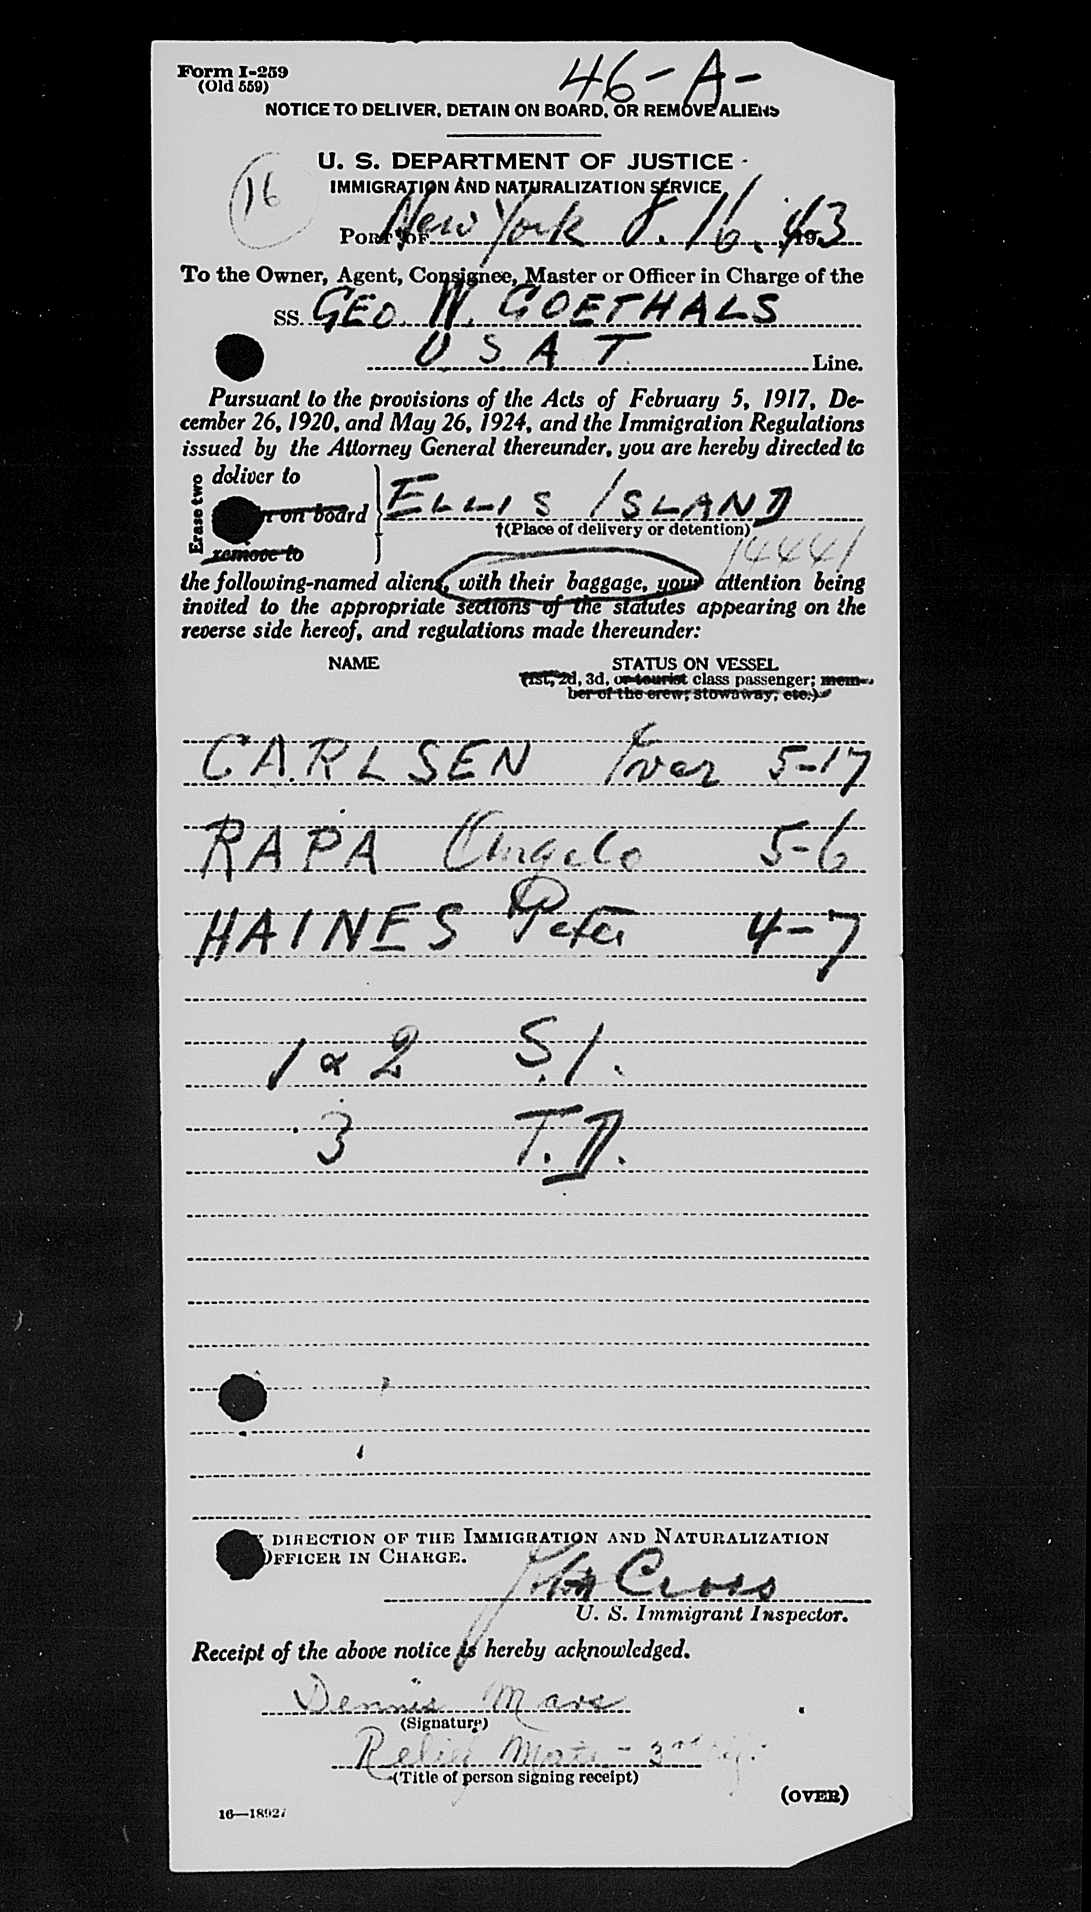 Form I-259
(Old 559)
46-A-
NOTICE TO DELIVER, DETAIN ON BOARD, OR REMOVE ALIENS
U. S. DEPARTMENT OF JUSTICE
IMMIGRATION AND NATURALIZATION SERVICE
16
Port of New York 8.16.43
To the Owner, Agent, Consignee, Master or Officer in Charge of the
SS. GEO. W. GOETHALS
U S A T Line.
Pursuant to the provisions of the Acts of February 5, 1917, De-
cember 26, 1920, and May 26, 1924, and the Immigration Regulations
issued by the Attorney General thereunder, you are hereby directed to
Erase two
deliver to
on board
remove to
ELLIS ISLAND
†(Place of delivery or detention)
14441
the following-named aliens, with their baggage, your attention being
invited to the appropriate sections of the statutes appearing on the
reverse side hereof, and regulations made thereunder:
NAME STATUS ON VESSEL
(1st, 2d, 3d, or tourist class passenger; mem-
ber of the crew; stowaway, etc.)
CARLSEN Ivar 5-17
RAPA Angelo 5-6
HAINES Peter 4-7
1 & 2 S.I.
3 T.D.
DIRECTION OF THE IMMIGRATION AND NATURALIZATION
OFFICER IN CHARGE.
Cross
U. S. Immigrant Inspector.
Receipt of the above notice is hereby acknowledged.
Dennis Mars
(Signature)
Relief Mate - 3rd
(Title of person signing receipt)
(OVER)
16—18927